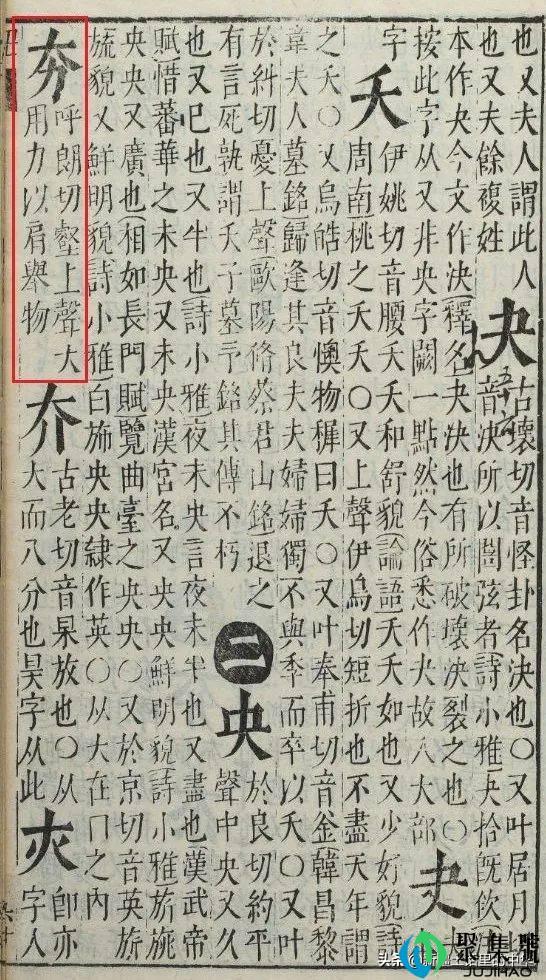 也又夫人謂此人
也又夫餘複姓
夬
古壞切音怪卦名決也○又叶居月
音決所以闓弦者詩小雅夬拾既佽
本作夬今文作決釋名夬決也有所破壞決裂之也○
按此字从又非央字闕一點然今俗悉作夬故入大部
字
夭
伊姚切音腰夭夭和舒貌論語夭夭如也又少好貌詩
周南桃之夭夭○又上聲伊鳥切短折也不盡天年謂
之夭○又烏皓切音懊物穉曰夭○又叶奉甫切音釜韓昌黎
韋夫人墓銘歸逢其良夫夫婦婦獨不與年而卒以夭○又叶
於糾切憂上聲歐陽脩蔡君山銘退之
有言死孰謂夭子墓予銘其傳不朽
二
央
於良切約平
聲中央又久
也又已也又半也詩小雅夜未央言夜未半也又盡也漢武帝
賦惜蕃華之未央又未央漢宮名又央央鮮明貌詩小雅旂旐
央央又廣也相如長門賦覽曲臺之央央○又於京切音英旂
旒貌又鮮明貌詩小雅白斾央央隸作英○从大在冂之內
夯
呼朗切壑上聲大
用力以肩舉物
夰
古老切音杲放也○从
大而八分也昊字从此
即亦
字人
聚集號
JUJIHAO